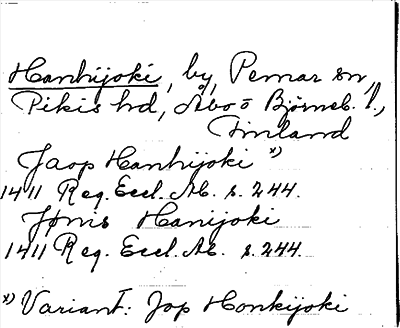 Hanhijoki, by, Pemar sn,
Pikis hd, Åbo o Björneb. l.,
Finland
Jaop Hanhijoki x)
1411 Reg. Eccl. Ab. s. 244.
Jönis Hanijoki
1411 Reg. Eccl. Ab. s. 244.
x) Variant: Jop Honkijoki